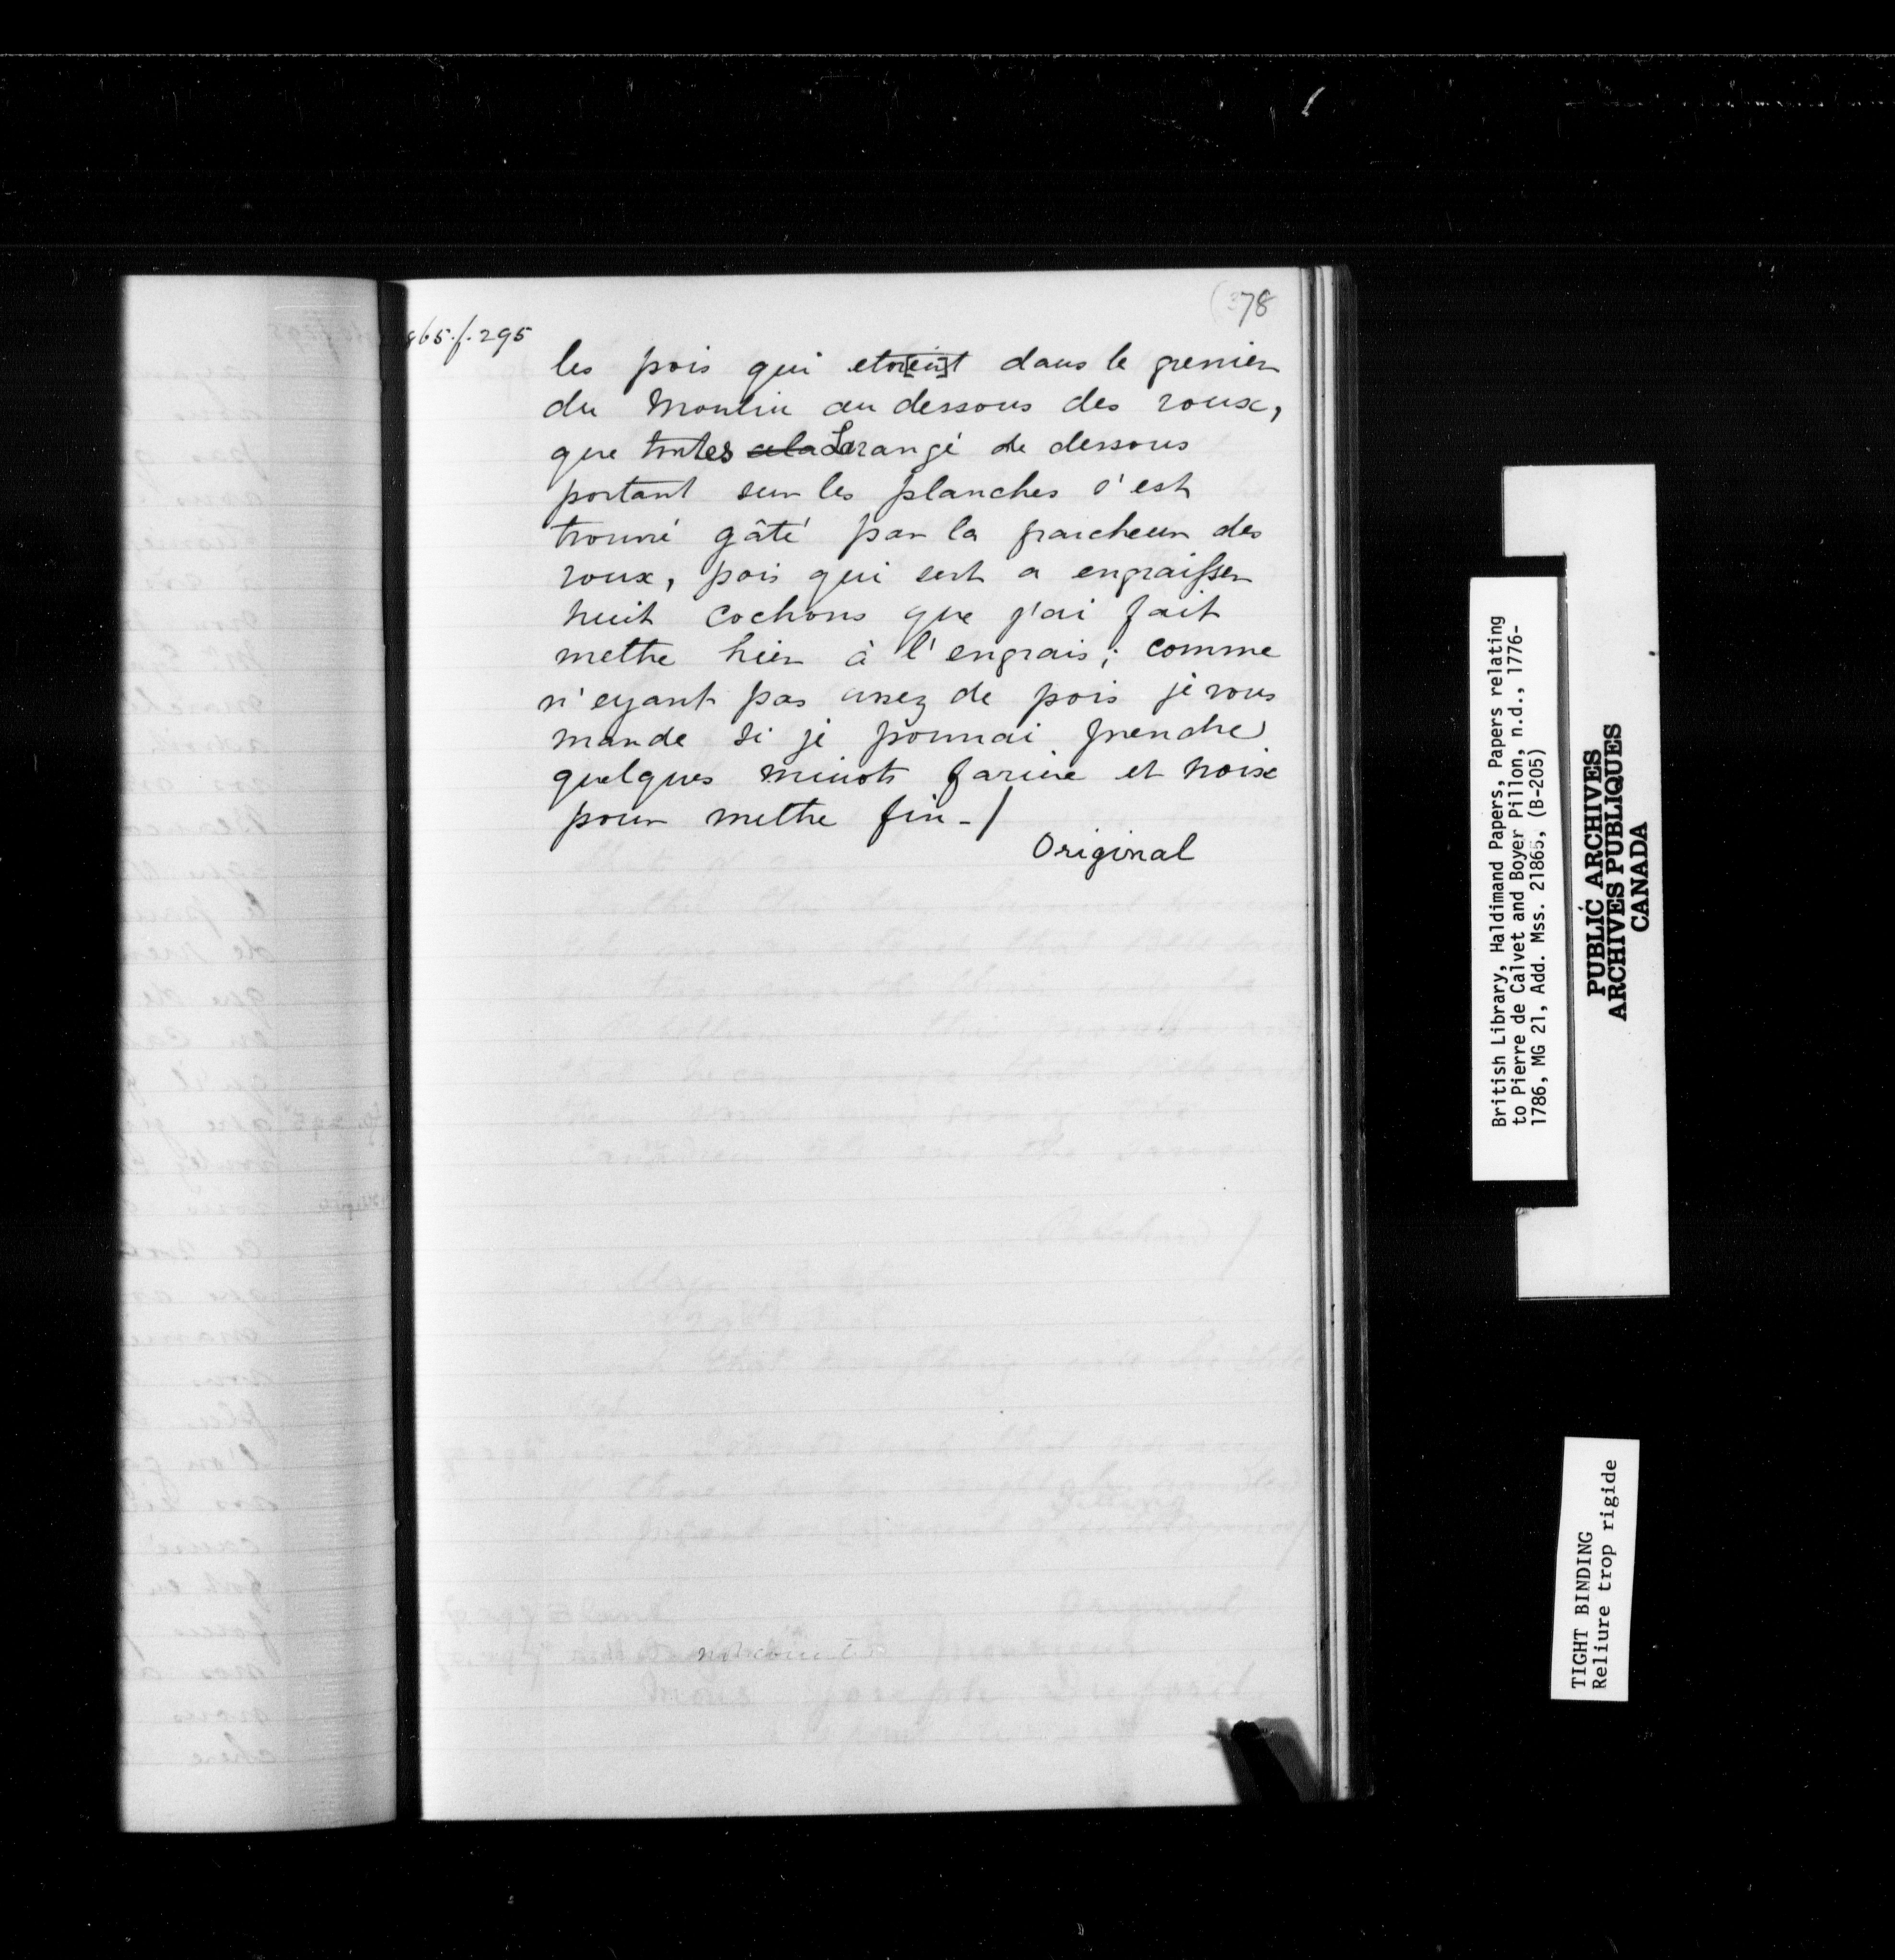 78
865.f.295
les pois qui etoi[en]t dans le grenier
du Moulin au dessous des roux,
que toutes cela Lerangé de dessous
portant sur les planches s'est
trouvé gâté par la fraicheur des
roux, pois qui sert a engraisser
huit cochons que j'ai fait
mettre hier à l'engrais; comme
n'eyant pas assez de pois je vous
mande si je pourrai prendre
quelques minots farine et noix
pour mettre fin-/
Original
British Library, Haldimand Papers, Papers relating
to Pierre de Calvet and Boyer Pillon, n.d., 1776-
1786, MG 21, Add. Mss. 21865, (B-205)
PUBLIC ARCHIVES
ARCHIVES PUBLIQUES
CANADA
TIGHT BINDING
Reliure trop rigide